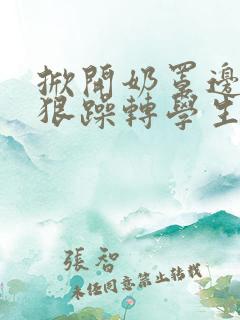 掀開奶罩邊
狠躁轉學生
張智
未經同意禁止轉載